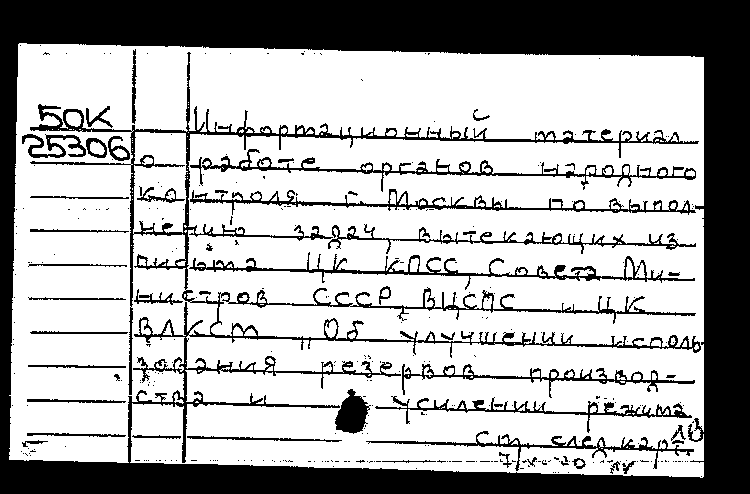 50К
25306
Информационный материал
о работе органов народного
контроля г. Москвы по выпол-
нению задач, вытекающих из
письма ЦК КПСС, Совета Ми-
нистров СССР, ВЦСПС и ЦК
ВЛКСМ „Об улучшении исполь
зования резервов производ-
ства и усилении режима
См. след. карт.